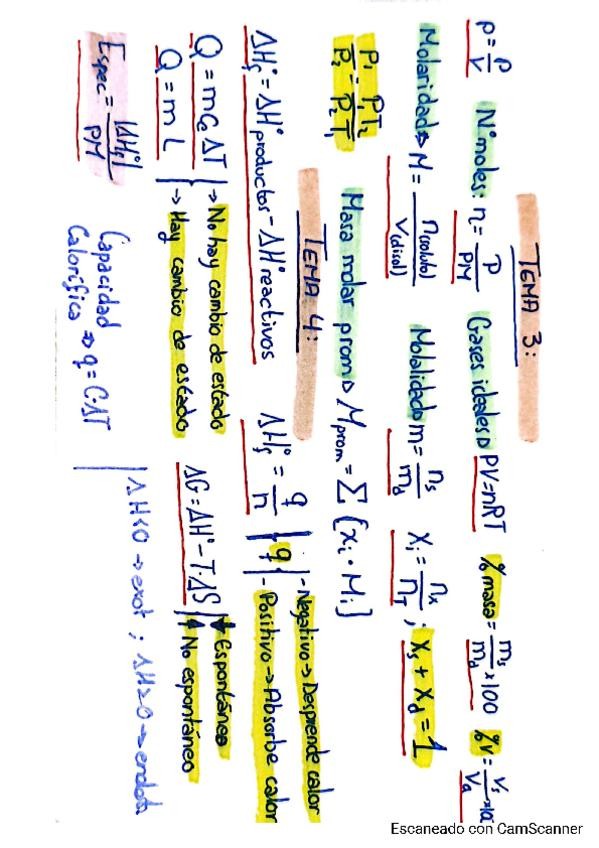 TEMA 3:
ρ = P/V   Nº moles: n = P/PM   Gases ideales ⇒ PV=nRT   % masa = ms/md x100   %V = Vs/Vd x100
Molaridad ⇒ M = n(soluto)/V(disol)   Molalidad m = ns/md   Xi = nx/nT ; Xs + Xd = 1
P1/P2 = P1T2/P2T1   Masa molar prom ⇒ Mprom = Σ (xi · Mi)
TEMA 4:
ΔHºf = ΔHº productos - ΔHº reactivos   ΔHºf = q/n   q - Negativo → Desprende calor
- Positivo → Absorbe calor
Q = m Ce ΔT → No hay cambio de estado   ΔG = ΔHº - T·ΔS   ↓ Espontánea
Q = m L → Hay cambio de estado   ↑ No espontáneo
Espec = |ΔHºf|/PM   Capacidad Calorífica ⇒ q = C·ΔT   ΔH<0 → exot ; ΔH>0 → endot
Escaneado con CamScanner